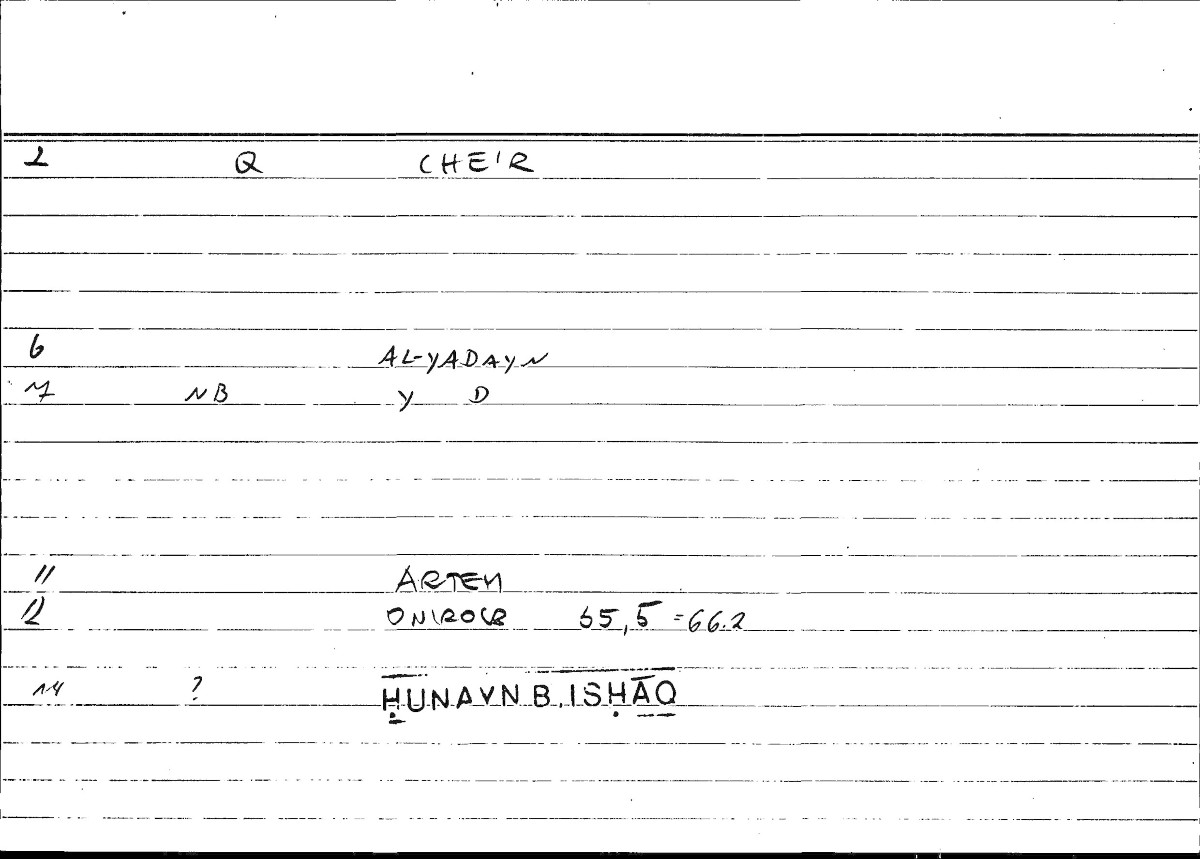 1 Q CHE'R
6 AL-YADAYN
7 NB Y D
11 ARTEM
12 ONIROCR 65,5 =66.2
14 ? ḤUNAYN B. ISḤĀQ